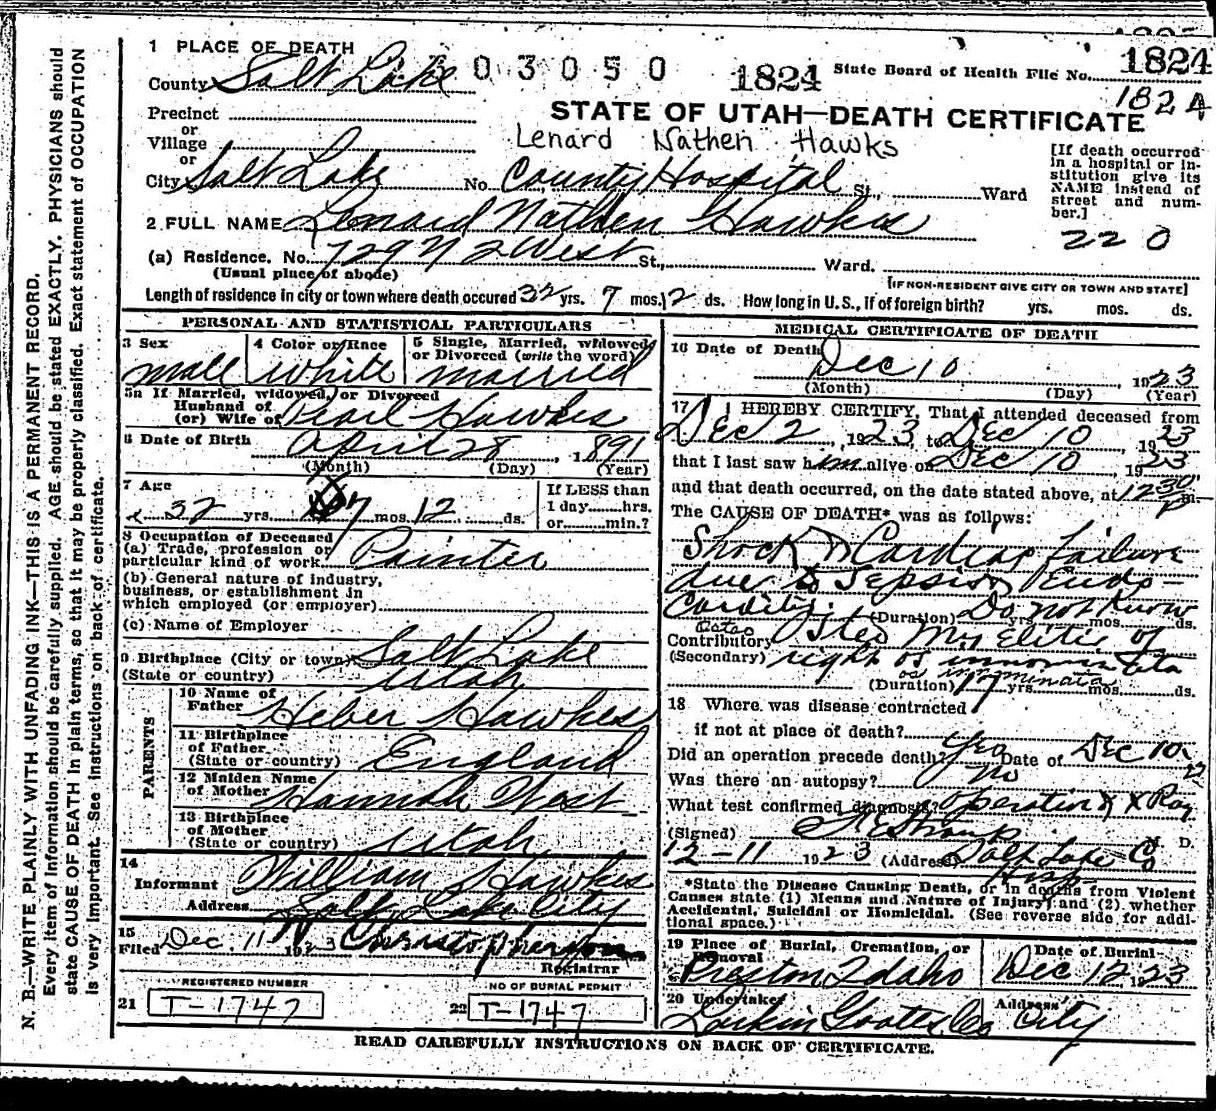 1 PLACE OF DEATH
County Salt Lake
03050
1824
State Board of Health File No. 1824
1824
STATE OF UTAH—DEATH CERTIFICATE
Precinct
or
Village
or
Lenard Nathen Hawks
City Salt Lake No. County Hospital St., Ward
[If death occurred in a hospital or institution give its NAME instead of street and number.]
220
2 FULL NAME Lenard Nathen Hawkes
(a) Residence. No. 729 N 2 West St., Ward.
(Usual place of abode)
[IF NON-RESIDENT GIVE CITY OR TOWN AND STATE]
Length of residence in city or town where death occured 32 yrs. 7 mos. 12 ds. How long in U.S., if of foreign birth? yrs. mos. ds.
PERSONAL AND STATISTICAL PARTICULARS
3 Sex
male
4 Color or Race
white
5 Single, Married, widowed or Divorced (write the word)
married
5a If Married, widowed, or Divorced
Husband of
(or) Wife of Pearl Hawkes
6 Date of Birth April 28, 1891
(Month) (Day) (Year)
7 Age
32 yrs. 7 mos. 12 ds.
If LESS than
1 day hrs.
or min.?
8 Occupation of Deceased
(a) Trade, profession or
particular kind of work Painter
(b) General nature of industry,
business, or establishment in
which employed (or employer)
(c) Name of Employer
9 Birthplace (City or town) Salt Lake
(State or country) Utah
PARENTS
10 Name of
Father Heber Hawkes
11 Birthplace
of Father
(State or country) England
12 Maiden Name
of Mother Hannah West
13 Birthplace
of Mother
(State or country) Utah
14
Informant William Hawkes
Address Salt Lake City
15
Filed Dec. 11 1923
Registrar
REGISTERED NUMBER
21 T-1747
NO OF BURIAL PERMIT
22 T-1747
MEDICAL CERTIFICATE OF DEATH
16 Date of Death
Dec 10, 1923
(Month) (Day) (Year)
17 I HEREBY CERTIFY, That I attended deceased from
Dec 2, 1923, to Dec 10, 1923
that I last saw him alive on Dec 10, 1923
and that death occurred, on the date stated above, at 12 30 P m.
The CAUSE OF DEATH* was as follows:
Shock & Cardiac failure
due to Sepsis Endo-
Carditis. (Duration) Do not know yrs. mos. ds.
Contributory Osteo Myelitis of
(Secondary) right os innominata
os innominata
(Duration) 17 yrs. mos. ds.
18 Where was disease contracted
if not at place of death?
Did an operation precede death? Yes Date of Dec 10
Was there an autopsy? No
What test confirmed diagnosis? Operation & X Ray
(Signed) M. D.
12-11 1923 (Address) Salt Lake Co
Hosp
*State the Disease Causing Death, or in deaths from Violent
Causes state (1) Means and Nature of Injury; and (2) whether
Accidental, Suicidal or Homicidal. (See reverse side for addi-
tional space.)
19 Place of Burial, Cremation, or
Removal
Preston Idaho
Date of Burial
Dec 12, 1923
20 Undertaker
Larkin Goates Co
Address
City
READ CAREFULLY INSTRUCTIONS ON BACK OF CERTIFICATE.
N. B.—WRITE PLAINLY WITH UNFADING INK—THIS IS A PERMANENT RECORD.
Every item of information should be carefully supplied. AGE should be stated EXACTLY. PHYSICIANS should
state CAUSE OF DEATH in plain terms, so that it may be properly classified. Exact statement of OCCUPATION
is very important. See instructions on back of certificate.